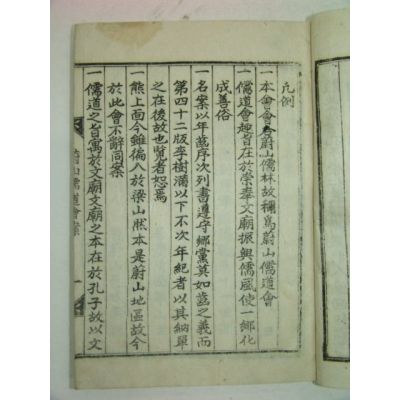 凡例
一本會會査蔚山儒林故稱爲蔚山儒道會
一儒道會趣旨在於崇奉文廟振興儒風使一鄕化
成善俗
一名案以年齒序次列書遵守鄕黨莫如齒之義而
第四十二版李樹滿以下不次年紀者以其納單
之在後故也覽者恕焉
一熊上面今雖徧入於梁山然本是蔚山地區故今
於此會不辭同案
一儒道之旨寓於文廟文廟之本在於孔子故以文
蔚山儒道會案
一